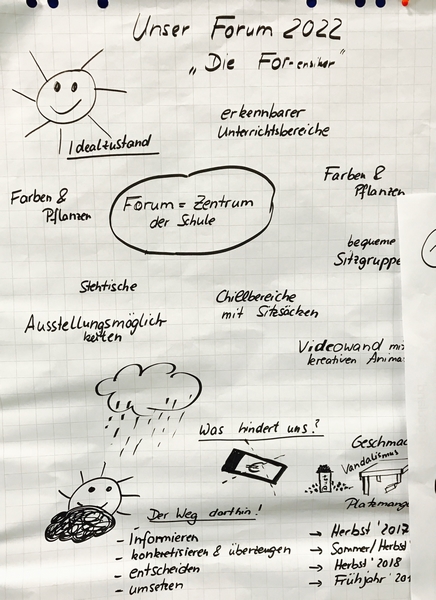 Unser Forum 2022
„Die For-ensiker"
Idealzustand
erkennbarer
Unterrichtsbereiche
Farben &
Pflanzen
Forum = Zentrum
der Schule
Farben &
Pflanzen
bequeme
Sitzgruppe
Stehtische
Chillbereiche
mit Sitzsäcken
Ausstellungsmöglich
keiten
Videowand mi
kreativen Anima
Was hindert uns?
€
Geschmac
Vandalismus
Platzmange
Der Weg dorthin!
- Informieren → Herbst '2017
- konkretisieren & überzeugen → Sommer/Herbst
- entscheiden → Herbst '2018
- umsetzen → Frühjahr '20